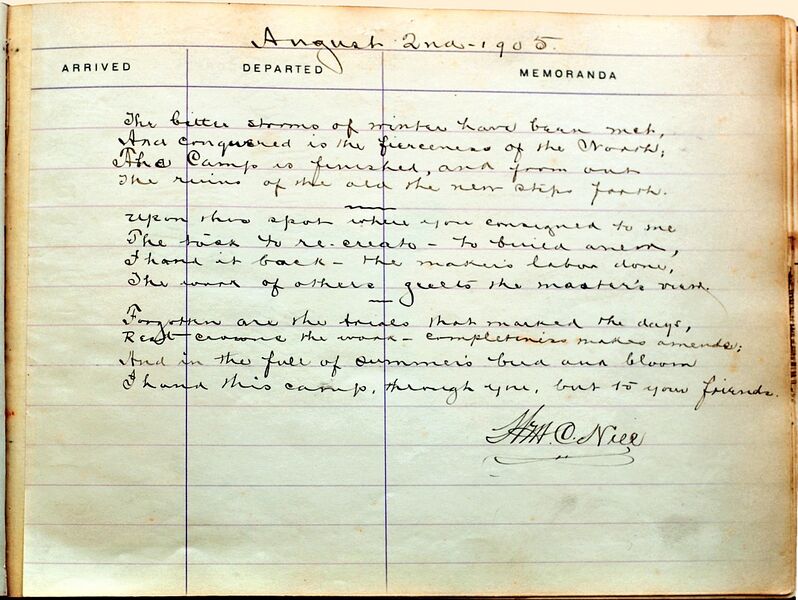 August 2nd - 1905.
ARRIVED DEPARTED MEMORANDA
The bitter storms of winter have been met,
And conquered is the fierceness of the North;
The Camp is finished, and from out
The ruins of the old the new steps forth.
Upon this spot where you consigned to me
The task to re-create - to build anew,
I hand it back - the maker's labor done,
The work of others greets the master's view.
Forgotten are the trials that marked the days,
Rest crowns the work - completeness makes amends;
And in the full of summer's bud and bloom
I hand this camp, through you, but to your friends.
Wm. C. Niee